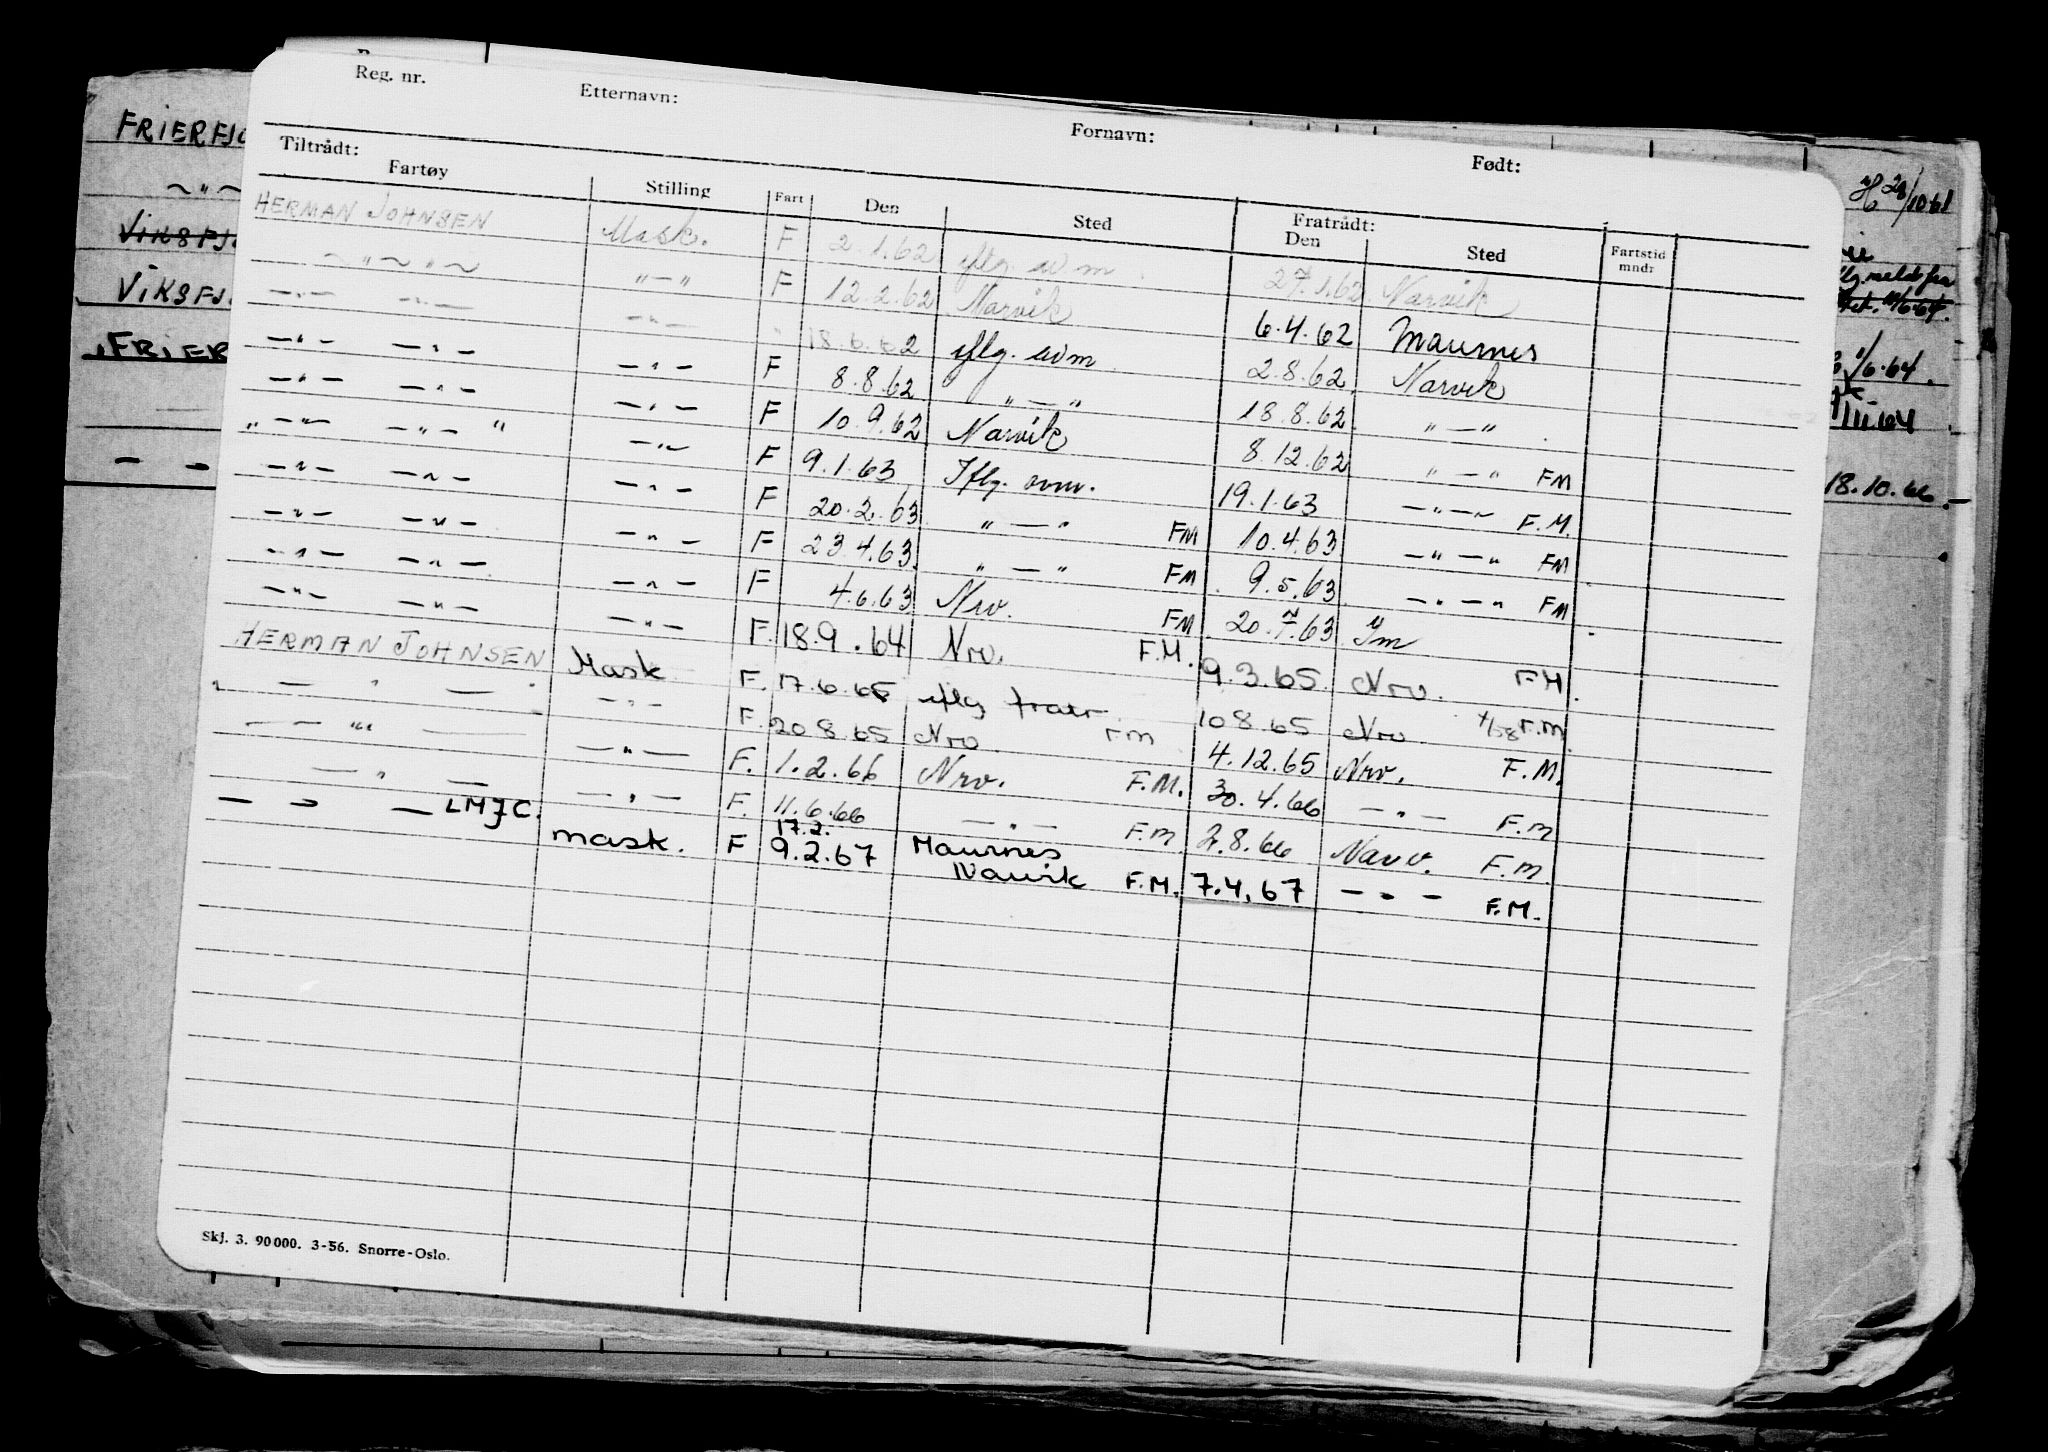 Reg. nr. Etternavn: Fornavn: Født:
Tiltrådt: Fratrådt:
Fartøy Stilling Fart Den Sted Den Sted Fartstid mndr
HERMAN JOHNSEN Mask. F 2.1.62 iflg. avm. 27.1.62 Narvik
~ " ~ " ~ " — " F 12.2.62 Narvik 6.4.62 Maurnes
— " — — " — — " — 18.6.62 iflg. avm. 2.8.62 Narvik
— " — — " — — " — F 8.8.62 " — " 18.8.62 " — " .
— " — — " — — " — F 10.9.62 Narvik 8.12.62 " — " FM
" — " — — " — " — " — F 9.1.63 Iflg. avm. 19.1.63 — " — " F.M.
— " — — " — — " — F 20.2.63 " — " FM 10.4.63 — " — " FM
— " — — " — — " — F 23.4.63 " — " FM 9.5.63 — " — " FM
— " — — " — — " — F 4.6.63 Nrv. FM 20.7.63 Jm
— " — — " — — " — F. 18.9.64 Nrv. F.M. 9.3.65 Nrv. FM.
HERMAN JOHNSEN Mask F. 17.6.65 iflg fratr. 10 8.65 Nrv F.M.
" — " — " — " — F. 20 8.65 Nrv. FM 4.12.65 Nrv. F.M.
— — " " — — " — F. 1.2.66 Nrv. F.M. 30.4.66 — " — F.M
— " — — " — F. 11.6.66 — " — F.M 2.8.66 Narv. F.M.
— " — LMJC. mask. F 17.2.
9.2.67 Maurnes
Narvik F.M. 7.4.67 — " — F.M.
Skj. 3. 90 000. 3-56. Snorre-Oslo.
FRIERFJO
~ " ~
VIKSFJ.
VIKSFJ.
FRIER
— —
28/10 61
1/6.64.
18.10.66.—